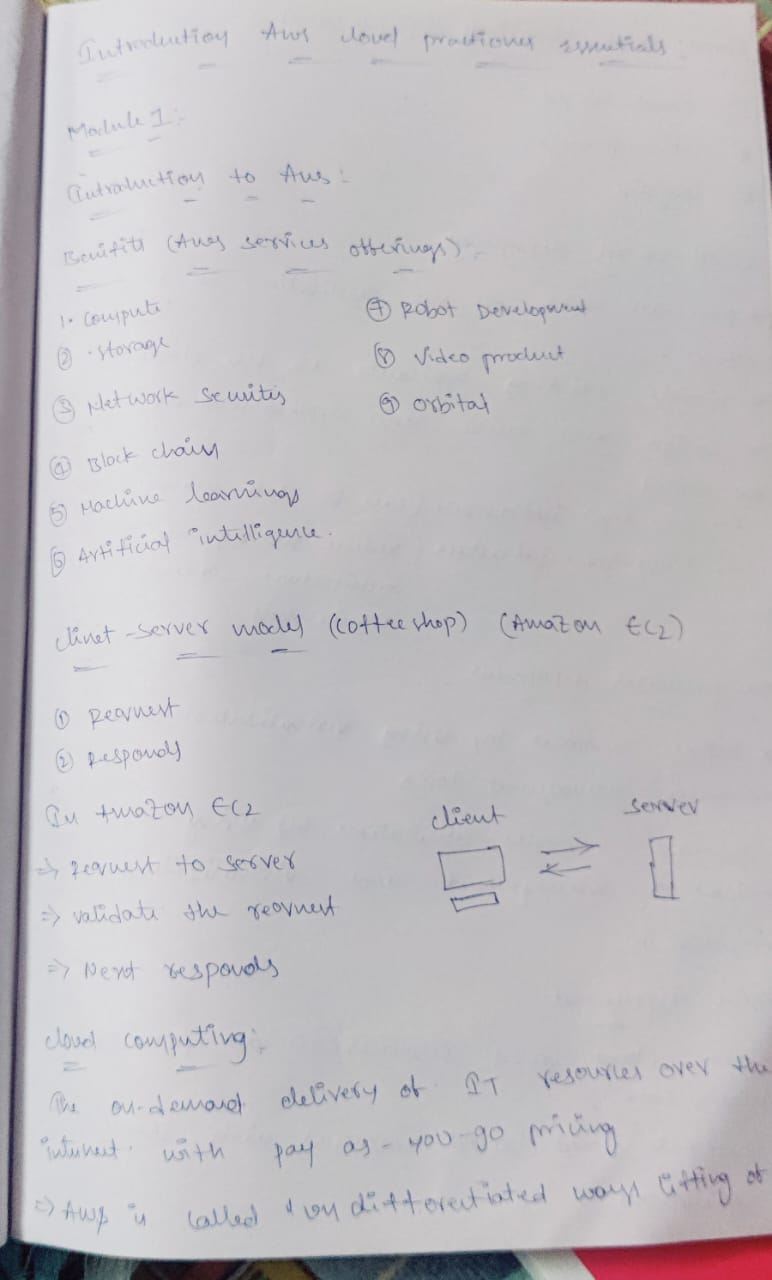 Introduction Aws cloud practioner essentials
Module 1:-
Introduction to Aws:
Benifits (Aws services offerings):-
1. Compute
② . storage
③ Network Scuritis
④ Block chain
⑤ Machine learnings
⑥ Artificial intelligence.
⑦ Robot Development
⑧ Video product
⑨ orbital
clinet-server model (coffee shop) (Amazon EC2)
① Request
② Responds
In Amazon EC2
⇒ Request to server
⇒ validate the request
⇒ Next responds
client server
cloud computing:
The on-demand delivery of IT resources over the
internet. with pay as-you-go pricing
⇒ AWS is called differentiated ways lifting of